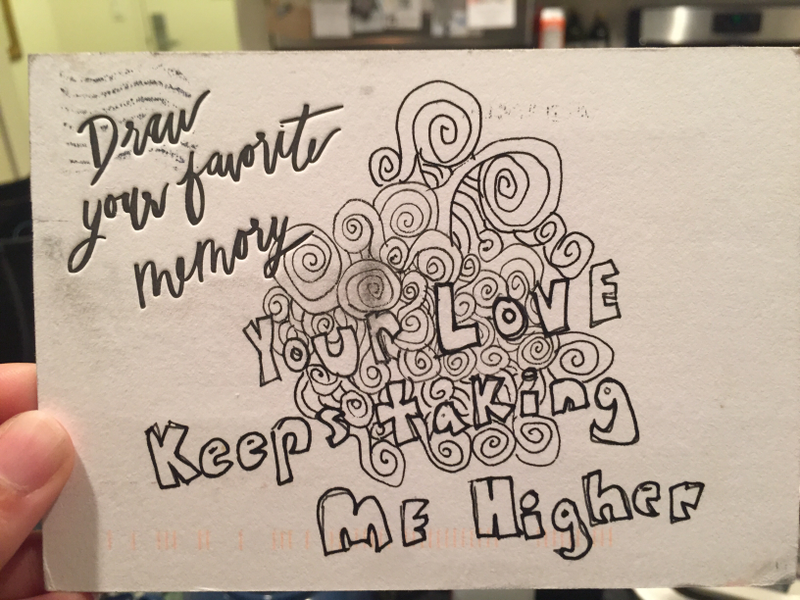 Draw
your favorite
memory
Your LOVE
Keeps taking
ME Higher